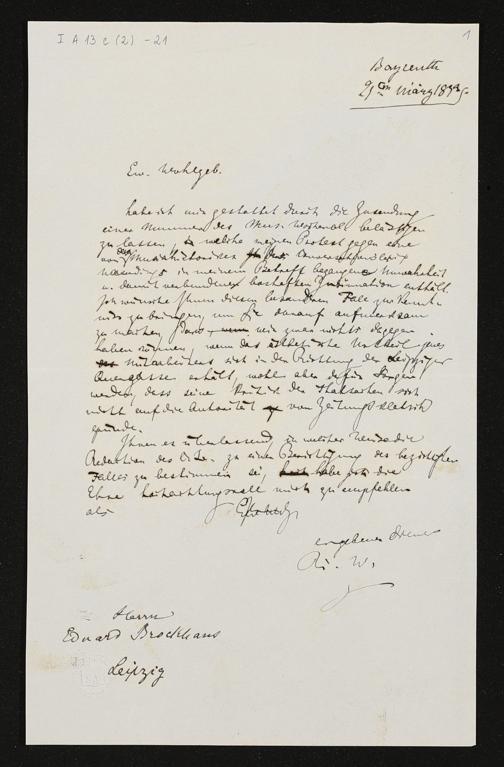 I A 13 c (2) - 21
1
Bayreuth
21 März 187
Ew. Wohlgeb.
habe ich mir gestattet durch die Zusendung
einer Nummer des Mus. Wochenbl. belästigen
zu lassen, welche meinen Protest gegen eine
von Musikhistoriker
in meinem Betreff begangene Unwahrheit
u. damit verbundener boshaften Insinuation enthält
Ich wünsche Ihnen diesen besondren Fall zur Kennt-
niss zu bringen, um Sie darauf aufmerksam
zu machen, dass wir zwar nichts dagegen
haben können, wenn das ästhetische Urtheil
Mitarbeiters sich in der Richtung der Leipziger
erhält, wohl aber dafür Sorgen
werden, dass seine Kritik der Thatsachen sich
nicht auf die Autorität von Zeitungsklatsch
gründe.
Ihnen es überlassend, in welcher Weise die
Redaction des zu einer Berichtigung des
Falles zu bestimmen sei, die
Ehre hochachtungsvoll mich zu empfehlen
als
ergebener Diener
Ri. W.
Herrn
Eduard Brockhaus
Leipzig